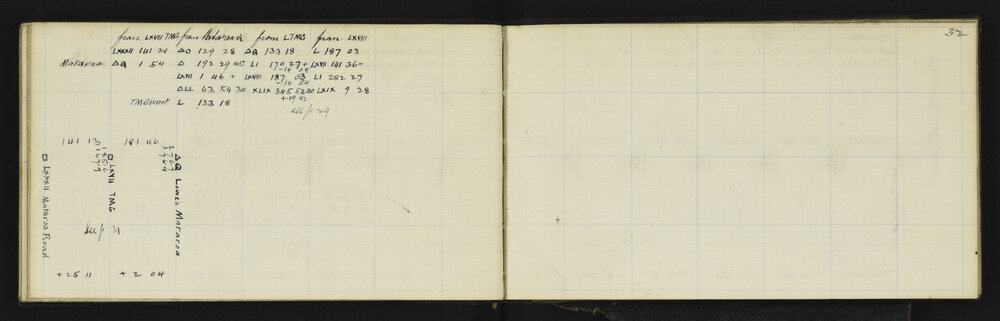 32
from LXVII TMG from Mataroa Q from L TMG from LXVIII
LXXXII 141 21 ΔO 129 28 ΔQ 133 18 L 187 03
Mataroa ΔQ 1 54 Δ 192 29 45 LI 170 27 + LXVII 141 36-
-14 08
LXVII 1 46 + LXVIII 187 03 LI 282 27
-14 04
ΔLL 62 54 30 XLIX 345 52 30 LXIX 9 28
+19 42
L 133 18
see p 29
141 12 181 46
□ LXXXII Mataroa Road
□ LXVII TMG
Δ Q Lower Mataroa
see p 31
+25 11 + 2 04